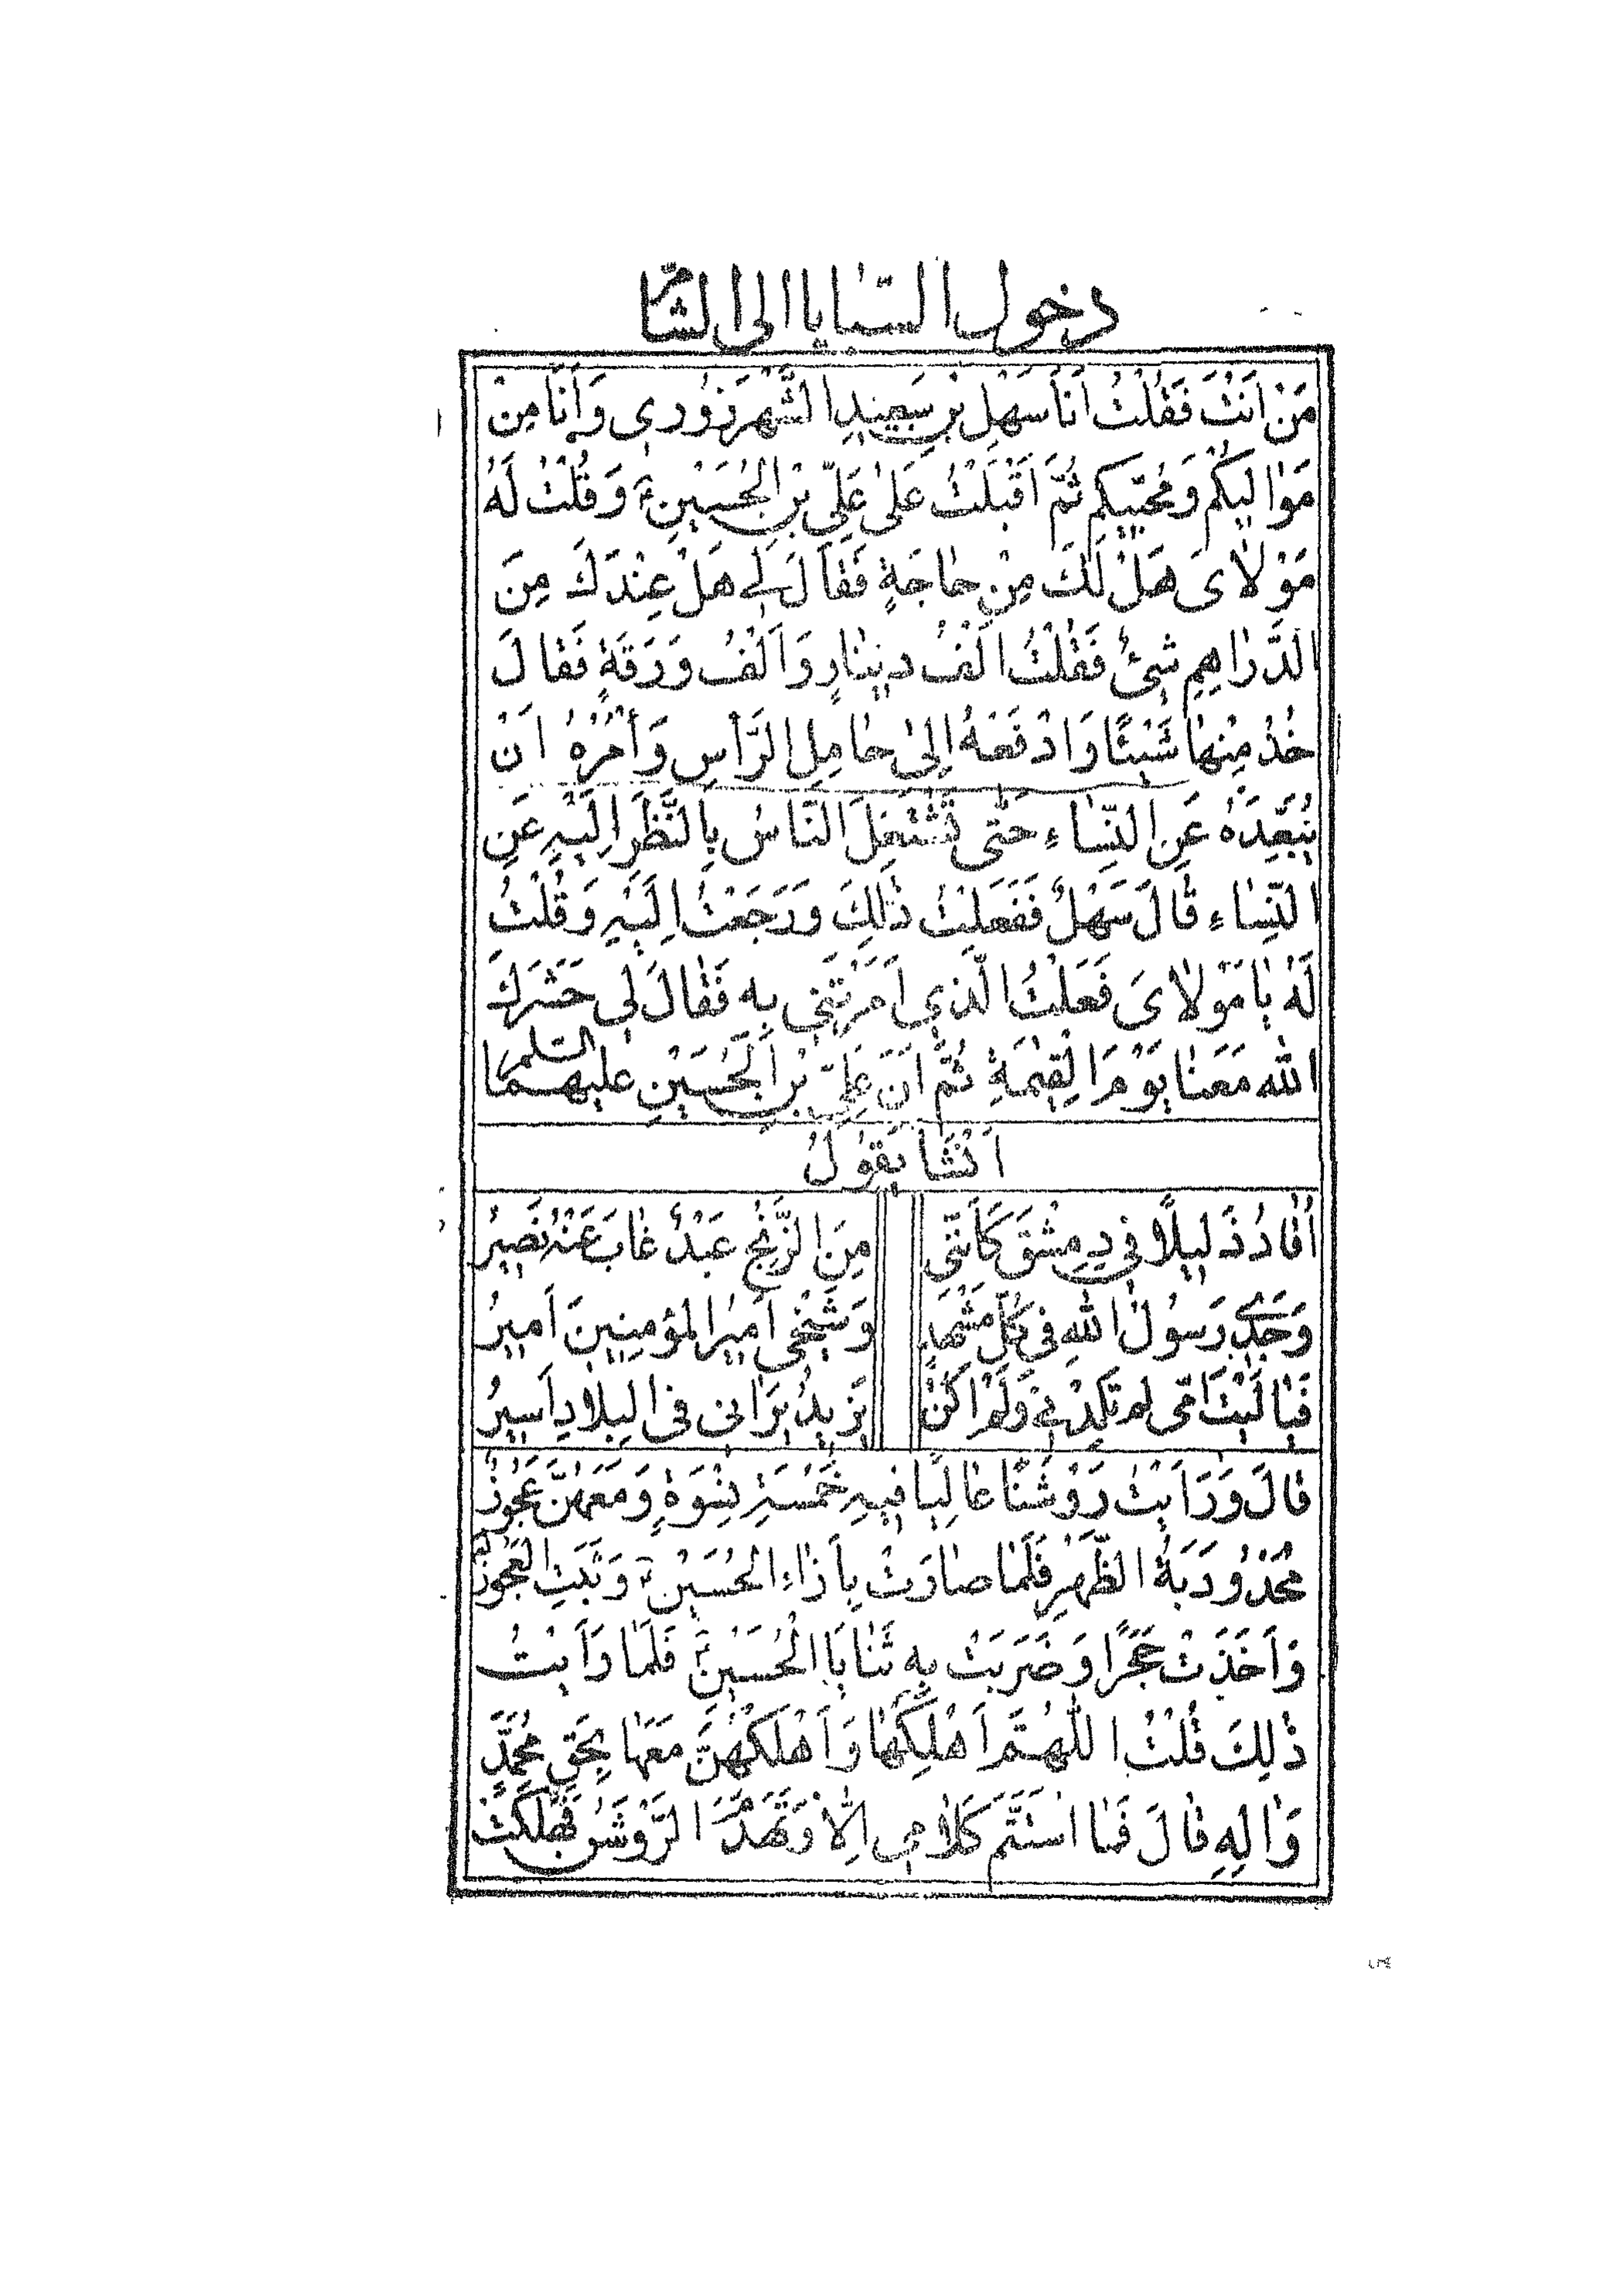 دخول السّبايا الى الشّام
مَنْ اَنْتَ فَقُلْتُ اَنَا سَهْلِ بْنِ سَعِيدِ الشَّهْرَزُورِي وَاَنَا مِنْ
مَوٰاليكُمْ وَمُحِبّيكم ثُمَّ اَقْبَلْتُ عَلىٰ عَلِيّ بْنِ الْحُسَيْنِ ع وَقُلْتُ لَهُ
مَوْلاٰىَ هَلْ لَكَ مِنْ حٰاجَةٍ فَقٰالَ لِي هَلْ عِنْدَكَ مِنَ
الدَّرٰاهِمِ شَيْءٌ فَقُلْتُ اَلْفُ دينٰارٍ وَاَلْفُ وَرَقَةٍ فَقٰالَ
خُذْ مِنْهٰا شَيْئًا وَادْفَعْهُ اِلىٰ حٰامِلِ الرَّأسِ وَأْمُرْهُ اَنْ
يُبَعِّدَهُ عَنِ النِّسٰاءِ حَتّى تَشْتَغِلَ النّاسُ بِالنَّظَرِ اِلَيْهِ عَنِ
النِّسٰاءِ قٰالَ سَهْلٌ فَفَعَلْتُ ذٰلِكَ وَرَجَعْتُ اِلَيْهِ وَقُلْتُ
لَهُ يٰا مَوْلاٰىَ فَعَلْتُ الَّذي اَمَرْتَني بِهِ فَقٰالَ لي حَشَرَكَ
الله مَعَنٰا يَوْمَ الْقِيٰمَةِ ثُمَّ اَنَّ عَلِيّ بْنِ الْحُسَيْنِ عليهما السّلم
اَنْشَأَ يَقوُلُ
اُقٰادُ ذَليلًا في دِمِشْقَ كَاَنَّني
مِنَ الزِّنْجِ عَبْدٌ غٰابَ عَنْهُ نَصيرُ
وَجَدّي رَسوُلُ اللهِ فى كُلِّ مَشْهَدٍ
وَشَيْخى اَميرُ المؤمِنينَ اَميرُ
فَيٰا لَيْتَ اُمّى لم تَلِدْني وَلَمْ اَكُنْ
يَزيدُ يَرٰانى فى الْبِلادِ اَسيرُ
قٰالَ وَرَاَيْتُ رَوْشَنًا عٰالِيًا فيهِ خَمْسَةِ نِسْوَةٍ وَمَعَهُنَّ عَجُوزٌ
مُحْدَوْدَبَةُ الظَّهْرِ فَلَمّٰا صٰارَتْ بِأَزٰاءِ الْحُسَيْنِ ع وَثَبَتِ الْعَجُوزُ
وَاَخَذَتْ حَجَرًا وَضَرَبَتْ بِهِ ثَنٰايَا الْحُسَيْنِ ع فَلَمّٰا رَاَيْتُ
ذٰلِكَ قُلْتُ اللّٰهُمَّ اَهْلِكْهٰا وَاَهْلِكْهُنَّ مَعَهٰا بِحَقِّ مُحَمَّدٍ
وَاٰلِهِ قٰالَ فَمٰا اسْتَتَمَّ كَلاٰمي اِلّا وَتَهَدَّمَ الرَّوْشَنُ فَهَلَكَتْ